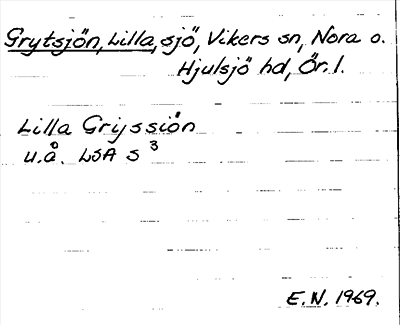 Grytsjön, Lilla, sjö, Vikers sn, Nora o.
Hjulsjö hd, Ör. l.
Lilla Grijssiön
u.å. LSA S 3
E.N. 1969.